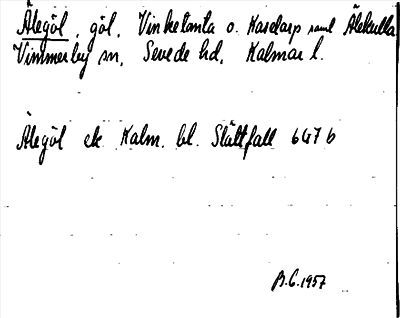 Älegöl, göl, Vinketomta o. Kasdarp samt Älekulla
Vimmerby sn, Sevede hd, Kalmar l.
Älegöl ek Kalm. bl. Slättfall 6476
B.G. 1957